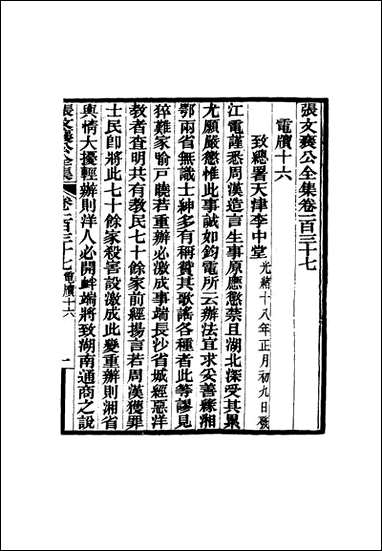 張文襄公全集卷一百三十七
電牘十六
致總署天津李中堂光緒十八年正月初九日發
江電謹悉周漢造言生事原應懲禁且湖北深受其累
尤願嚴懲惟此事誠如鈞電所云辦法宜求尖善緣湘
鄂兩省無識士紳多有稱贊其歌謠各種者此等謬見
猝難家喻戶曉若重辦必激成事端長沙省城經惡洋
教者查明共有教民七十餘家前經揚言若周漢獲罪
士民卽將此七十餘家殺害設激成此變重辦則湘省
輿情大擾輕辦則洋人必開衅端將致湖南通商之說
張文襄公全集 卷一百三十七 電牘十六 一